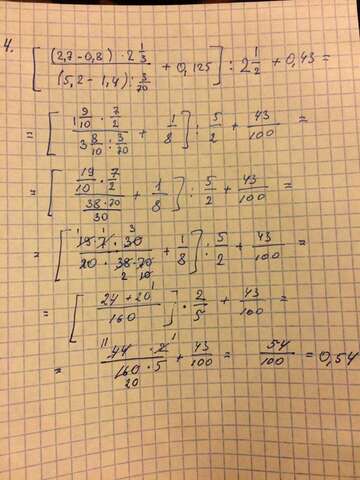 4.
[ ((2,7 - 0,8) · 2 1/3) / ((5,2 - 1,4) : 3/70) + 0,125 ] : 2 1/2 + 0,43 =
= [ (1 9/10 · 7/2) / (3 8/10 : 3/70) + 1/8 ] : 5/2 + 43/100 =
= [ (19/10 · 7/2) / (38·70/30) + 1/8 ] : 5/2 + 43/100 =
= [ (19·7·30) / (20·38·70) + 1/8 ] : 5/2 + 43/100 =
= [ (24+20)/160 ] · 2/5 + 43/100 =
= (44·2)/(160·5) + 43/100 = 54/100 = 0,54